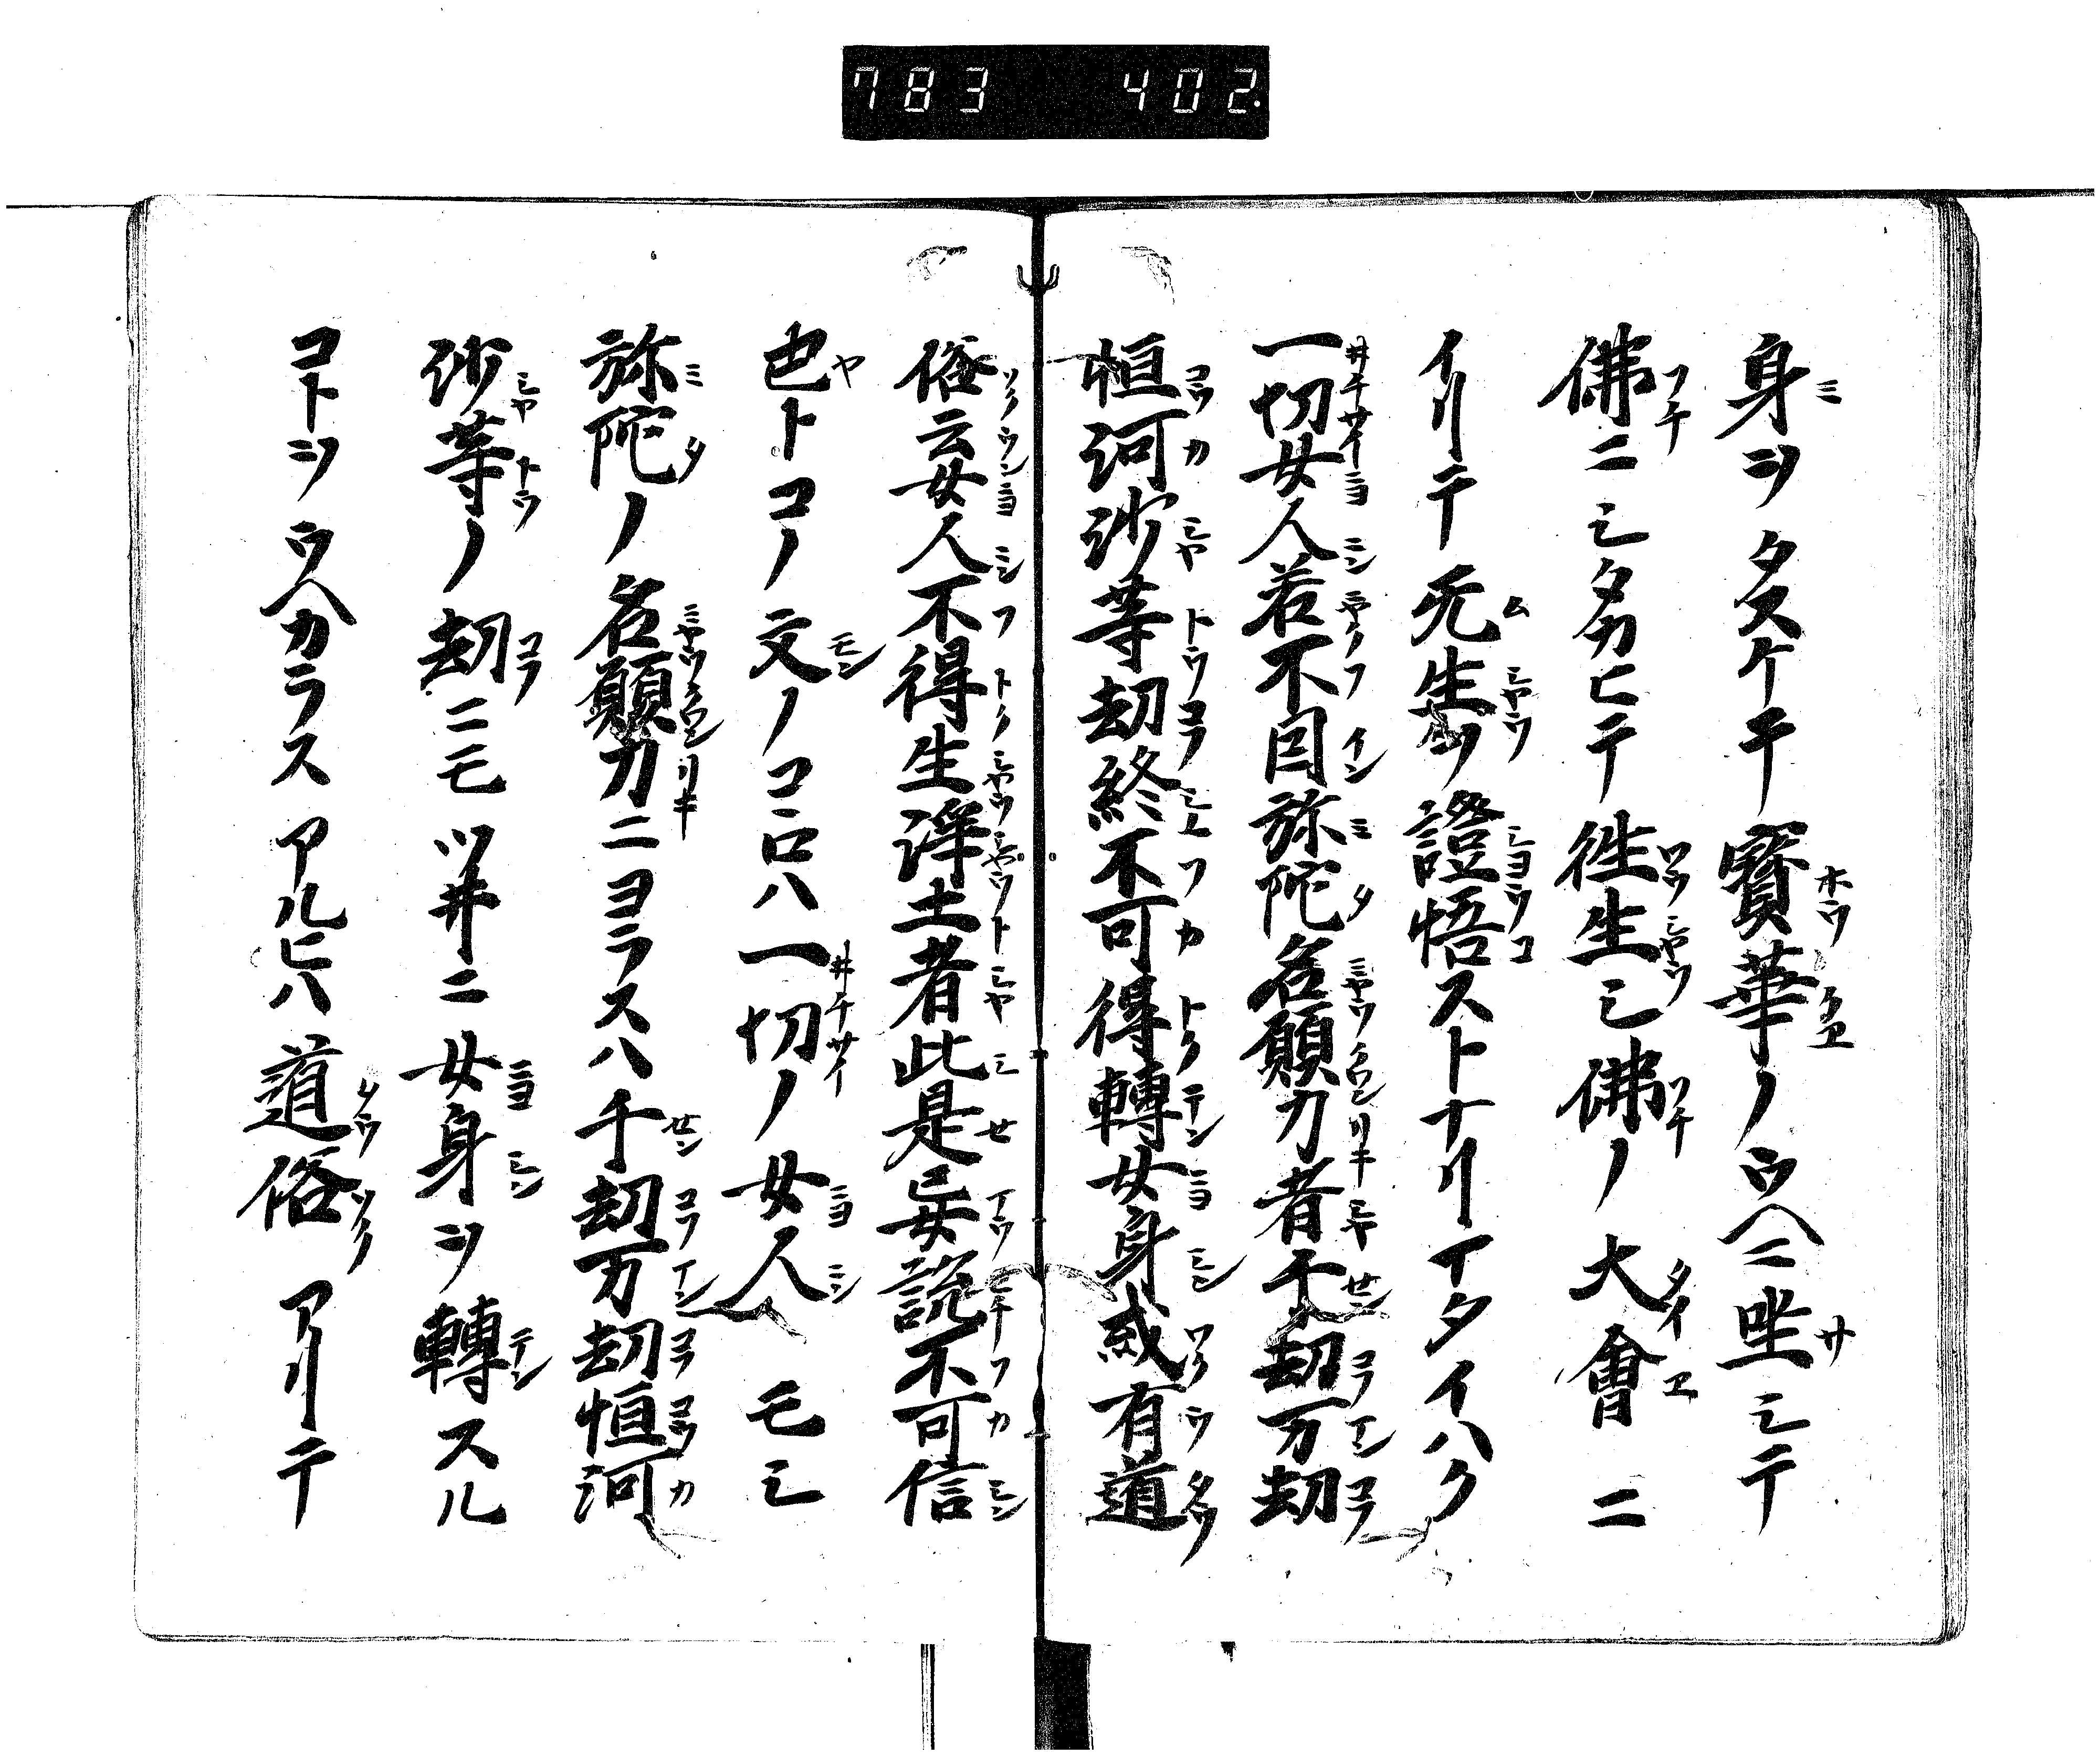 783 402
身ヲタスケテ寳華ノウヘニ坐シテ
佛ニシタカヒテ徃生シ佛ノ大會ニ
イリテ无生ヲ證悟ストナリマタイハク
一切女人若不因弥陀名願力者千劫万劫
恒河沙等劫終不可得轉女身或有道
俗云女人不得生淨土者此是妄説不可信
也トコノ文ノコヽロハ一切ノ女人モシ
弥陀ノ名願力ニヨラスハ千劫万劫恒河
沙等ノ劫ニモツ井ニ女身ヲ轉スル
コトヲウヘカラスアルヒハ道俗アリテ